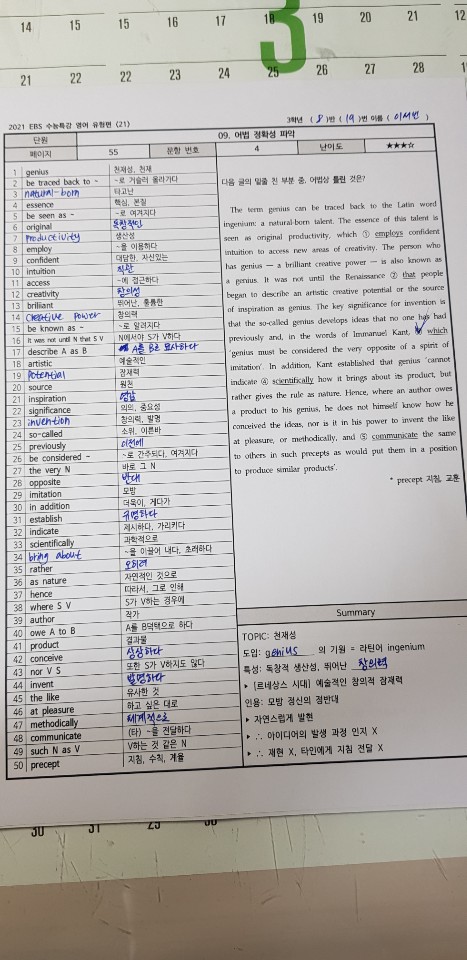 14 15 15 16 17 18 19 20 21
3
21 22 22 23 24 25 26 27 28
2021 EBS 수능특강 영어 유형편 (21)
3학년 ( 8 )반 ( 19 )번 이름 ( 이서빈 )
단원 09. 어법 정확성 파악
페이지 55 문항 번호 4 난이도 ★★★☆
1 genius 천재성, 천재
2 be traced back to ~ ~로 거슬러 올라가다
3 natural-born 타고난
4 essence 핵심, 본질
5 be seen as ~ ~로 여겨지다
6 original 독창적인
7 productivity 생산성
8 employ ~을 이용하다
9 confident 대담한, 자신있는
10 intuition 직관
11 access ~에 접근하다
12 creativity 창의성
13 brilliant 뛰어난, 훌륭한
14 creative power 창의력
15 be known as ~ ~로 알려지다
16 it was not until N that S V N에서야 S가 V하다
17 describe A as B A를 B로 묘사하다
18 artistic 예술적인
19 potential 잠재력
20 source 원천
21 inspiration 영감
22 significance 의의, 중요성
23 invention 창의력, 발명
24 so-called 소위, 이른바
25 previously 이전에
26 be considered ~ ~로 간주되다, 여겨지다
27 the very N 바로 그 N
28 opposite 반대
29 imitation 모방
30 in addition 더욱이, 게다가
31 establish 규명하다
32 indicate 제시하다, 가리키다
33 scientifically 과학적으로
34 bring about ~을 이끌어 내다, 초래하다
35 rather 오히려
36 as nature 자연적인 것으로
37 hence 따라서, 그로 인해
38 where S V S가 V하는 경우에
39 author 작가
40 owe A to B A를 B덕택으로 하다
41 product 결과물
42 conceive 상상하다
43 nor V S 또한 S가 V하지도 않다
44 invent 발명하다
45 the like 유사한 것
46 at pleasure 하고 싶은 대로
47 methodically 체계적으로
48 communicate (타) ~을 전달하다
49 such N as V V하는 것 같은 N
50 precept 지침, 수칙, 계율
다음 글의 밑줄 친 부분 중, 어법상 틀린 것은?
The term genius can be traced back to the Latin word
ingenium: a natural-born talent. The essence of this talent is
seen as original productivity, which ① employs confident
intuition to access new areas of creativity. The person who
has genius — a brilliant creative power — is also known as
a genius. It was not until the Renaissance ② that people
began to describe an artistic creative potential or the source
of inspiration as genius. The key significance for invention is
that the so-called genius develops ideas that no one has had
previously and, in the words of Immanuel Kant, which
'genius must be considered the very opposite of a spirit of
imitation'. In addition, Kant established that genius 'cannot
indicate ④ scientifically how it brings about its product, but
rather gives the rule as nature. Hence, where an author owes
a product to his genius, he does not himself know how he
conceived the ideas, nor is it in his power to invent the like
at pleasure, or methodically, and ⑤ communicate the same
to others in such precepts as would put them in a position
to produce similar products'.
* precept 지침, 교훈
Summary
TOPIC: 천재성
도입: genius 의 기원 = 라틴어 ingenium
특성: 독창적 생산성, 뛰어난 창의력
▸ [르네상스 시대] 예술적인 창의적 잠재력
인용: 모방 정신의 정반대
▸ 자연스럽게 발현
▸ ∴ 아이디어의 발생 과정 인지 X
▸ ∴ 재현 X, 타인에게 지침 전달 X
30 31 29 30